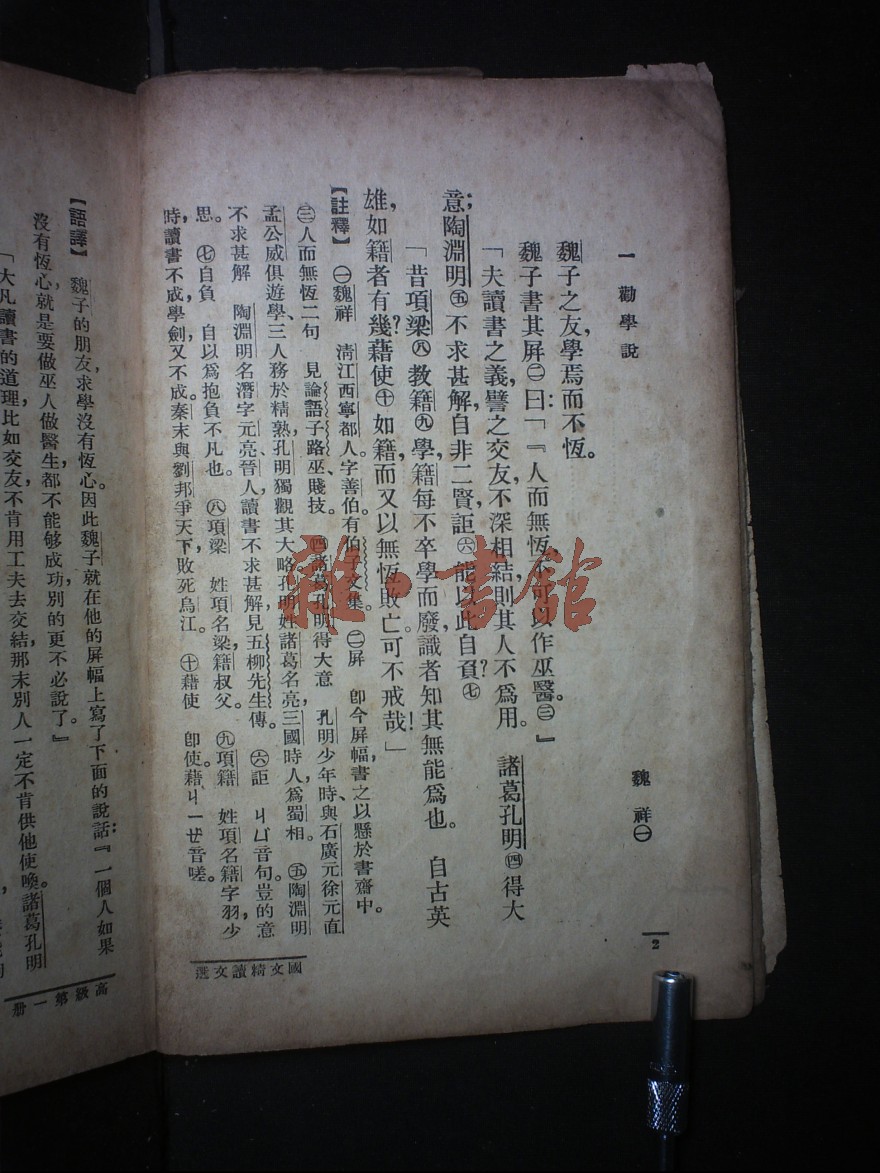 一 勸學說
魏祥㊀
2
魏子之友，學焉而不恆。
魏子書其屏㊁曰：「『人而無恆，不可以作巫醫。㊂』
「夫讀書之義，譬之交友，不深相結，則其人不爲用。 諸葛孔明㊃得大
意；陶淵明㊄不求甚解，自非二賢，詎㊅能以此自負㊆？
「昔項梁㊇教籍㊈學，籍每不卒學而廢，識者知其無能爲也。 自古英
雄，如籍者有幾？藉使㊉如籍，而又以無恆敗亡，可不戒哉！」
【註釋】 ㊀魏祥 清江西寧都人，字善伯，有伯子文集。㊁屏 卽今屏幅，書之以懸於書齋中。
㊂人而無恆二句 見論語子路。巫、賤技。 ㊃諸葛孔明得大意 孔明少年時、與石廣元徐元直
孟公威俱遊學、三人務於精熟，孔明獨觀其大略。孔明姓諸葛名亮，三國時人，爲蜀相。 ㊄陶淵明
不求甚解 陶淵明名潛字元亮、晉人，讀書不求甚解，見五柳先生傳。 ㊅詎 ㄐㄩ音句，豈的意
思。 ㊆自負 自以爲抱負不凡也。 ㊇項梁 姓項名梁，籍叔父。 ㊈項籍 姓項名籍字羽，少
時，讀書不成，學劍，又不成。秦末與劉邦爭天下，敗死烏江。 ㊉藉使 卽使。藉ㄐㄧㄝ音嗟。
國文精讀文選
【語譯】 魏子的朋友，求學沒有恆心。因此魏子就在他的屏幅上寫了下面的說話：『一個人如果
沒有恆心，就是要做巫人做醫生，都不能够成功，別的更不必說了。』
「大凡讀書的道理，比如交友，不肯用工夫去交結，那末別人一定不肯供他使喚。諸葛孔明
高級第一册
雜·書館